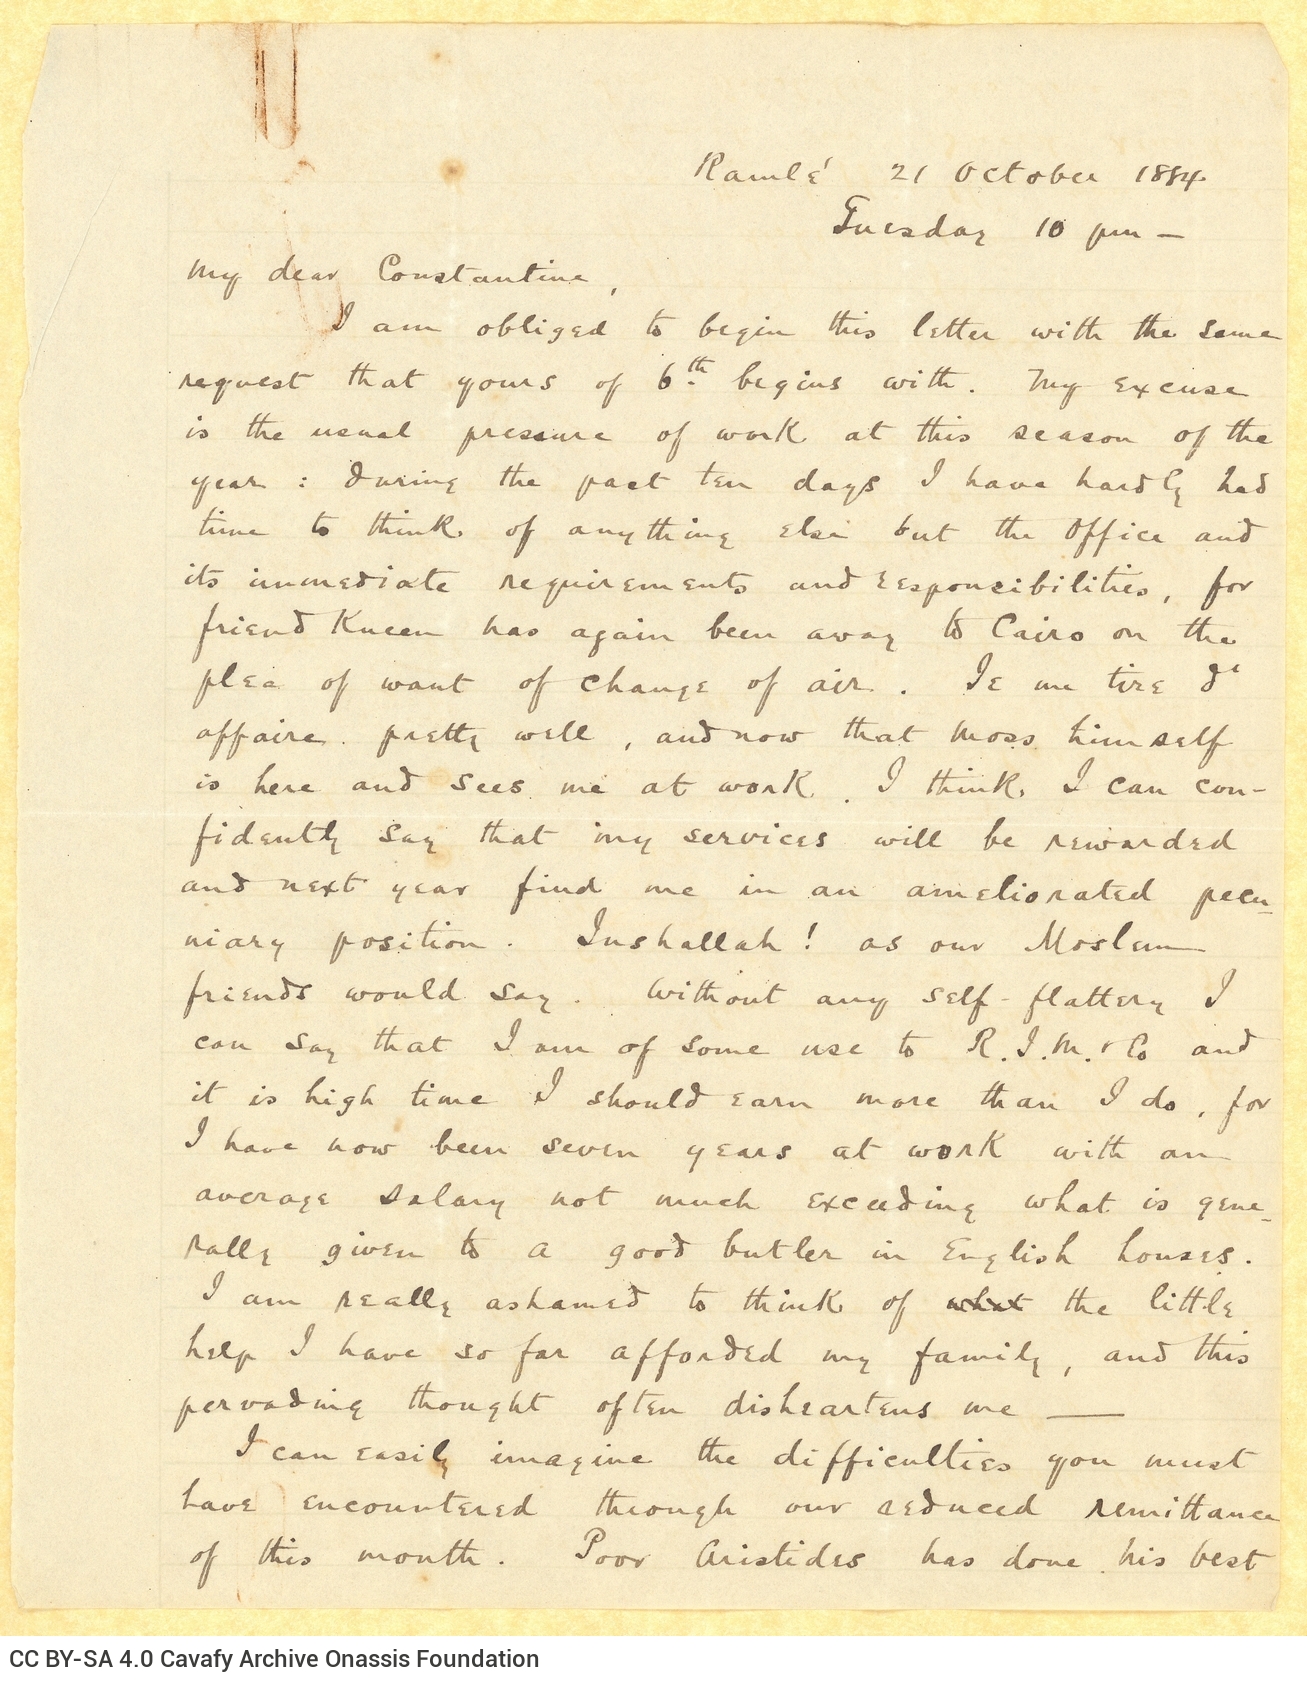 Ramlé 21 October 1884
Tuesday 10 pm —
My dear Constantine,
I am obliged to begin this letter with the same
request that yours of 6th begins with. My excuse
is the usual pressure of work at this season of the
year : during the past ten days I have hardly had
time to think of anything else but the Office and
its immediate requirements and responcibilities, for
friend Kueen has again been away to Cairo on the
plea of want of change of air. Je me tire d'
affaire pretty well, and now that Moss himself
is here and sees me at work, I think I can con-
fidently say that my services will be rewarded
and next year find me in an ameliorated pecu-
niary position. Inshallah! as our Moslem
friends would say. Without any self-flattery I
can say that I am of some use to R.J.M. & Co and
it is high time I should earn more than I do, for
I have now been seven years at work with an
average salary not much exceeding what is gene-
rally given to a good butler in English houses.
I am really ashamed to think of what the little
help I have so far afforded my family, and this
pervading thought often disheartens me —
I can easily imagine the difficulties you must
have encountered through our reduced remittance
of this month. Poor Aristides has done his best
CC BY-SA 4.0 Cavafy Archive Onassis Foundation